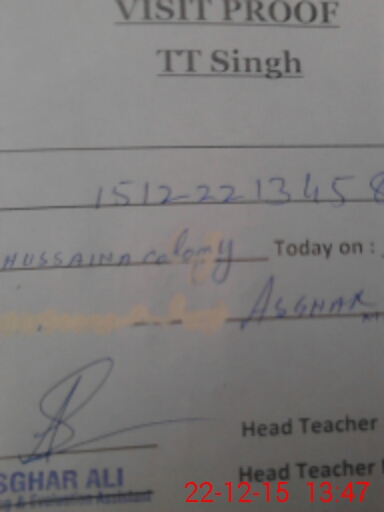 VISIT PROOF
TT Singh
1512-2213458
HUSSAINA colomy Today on :
ASGHAR
Head Teacher
SGHAR ALI
Head Teacher
g & Evolution Assistant
22-12-15 13:47